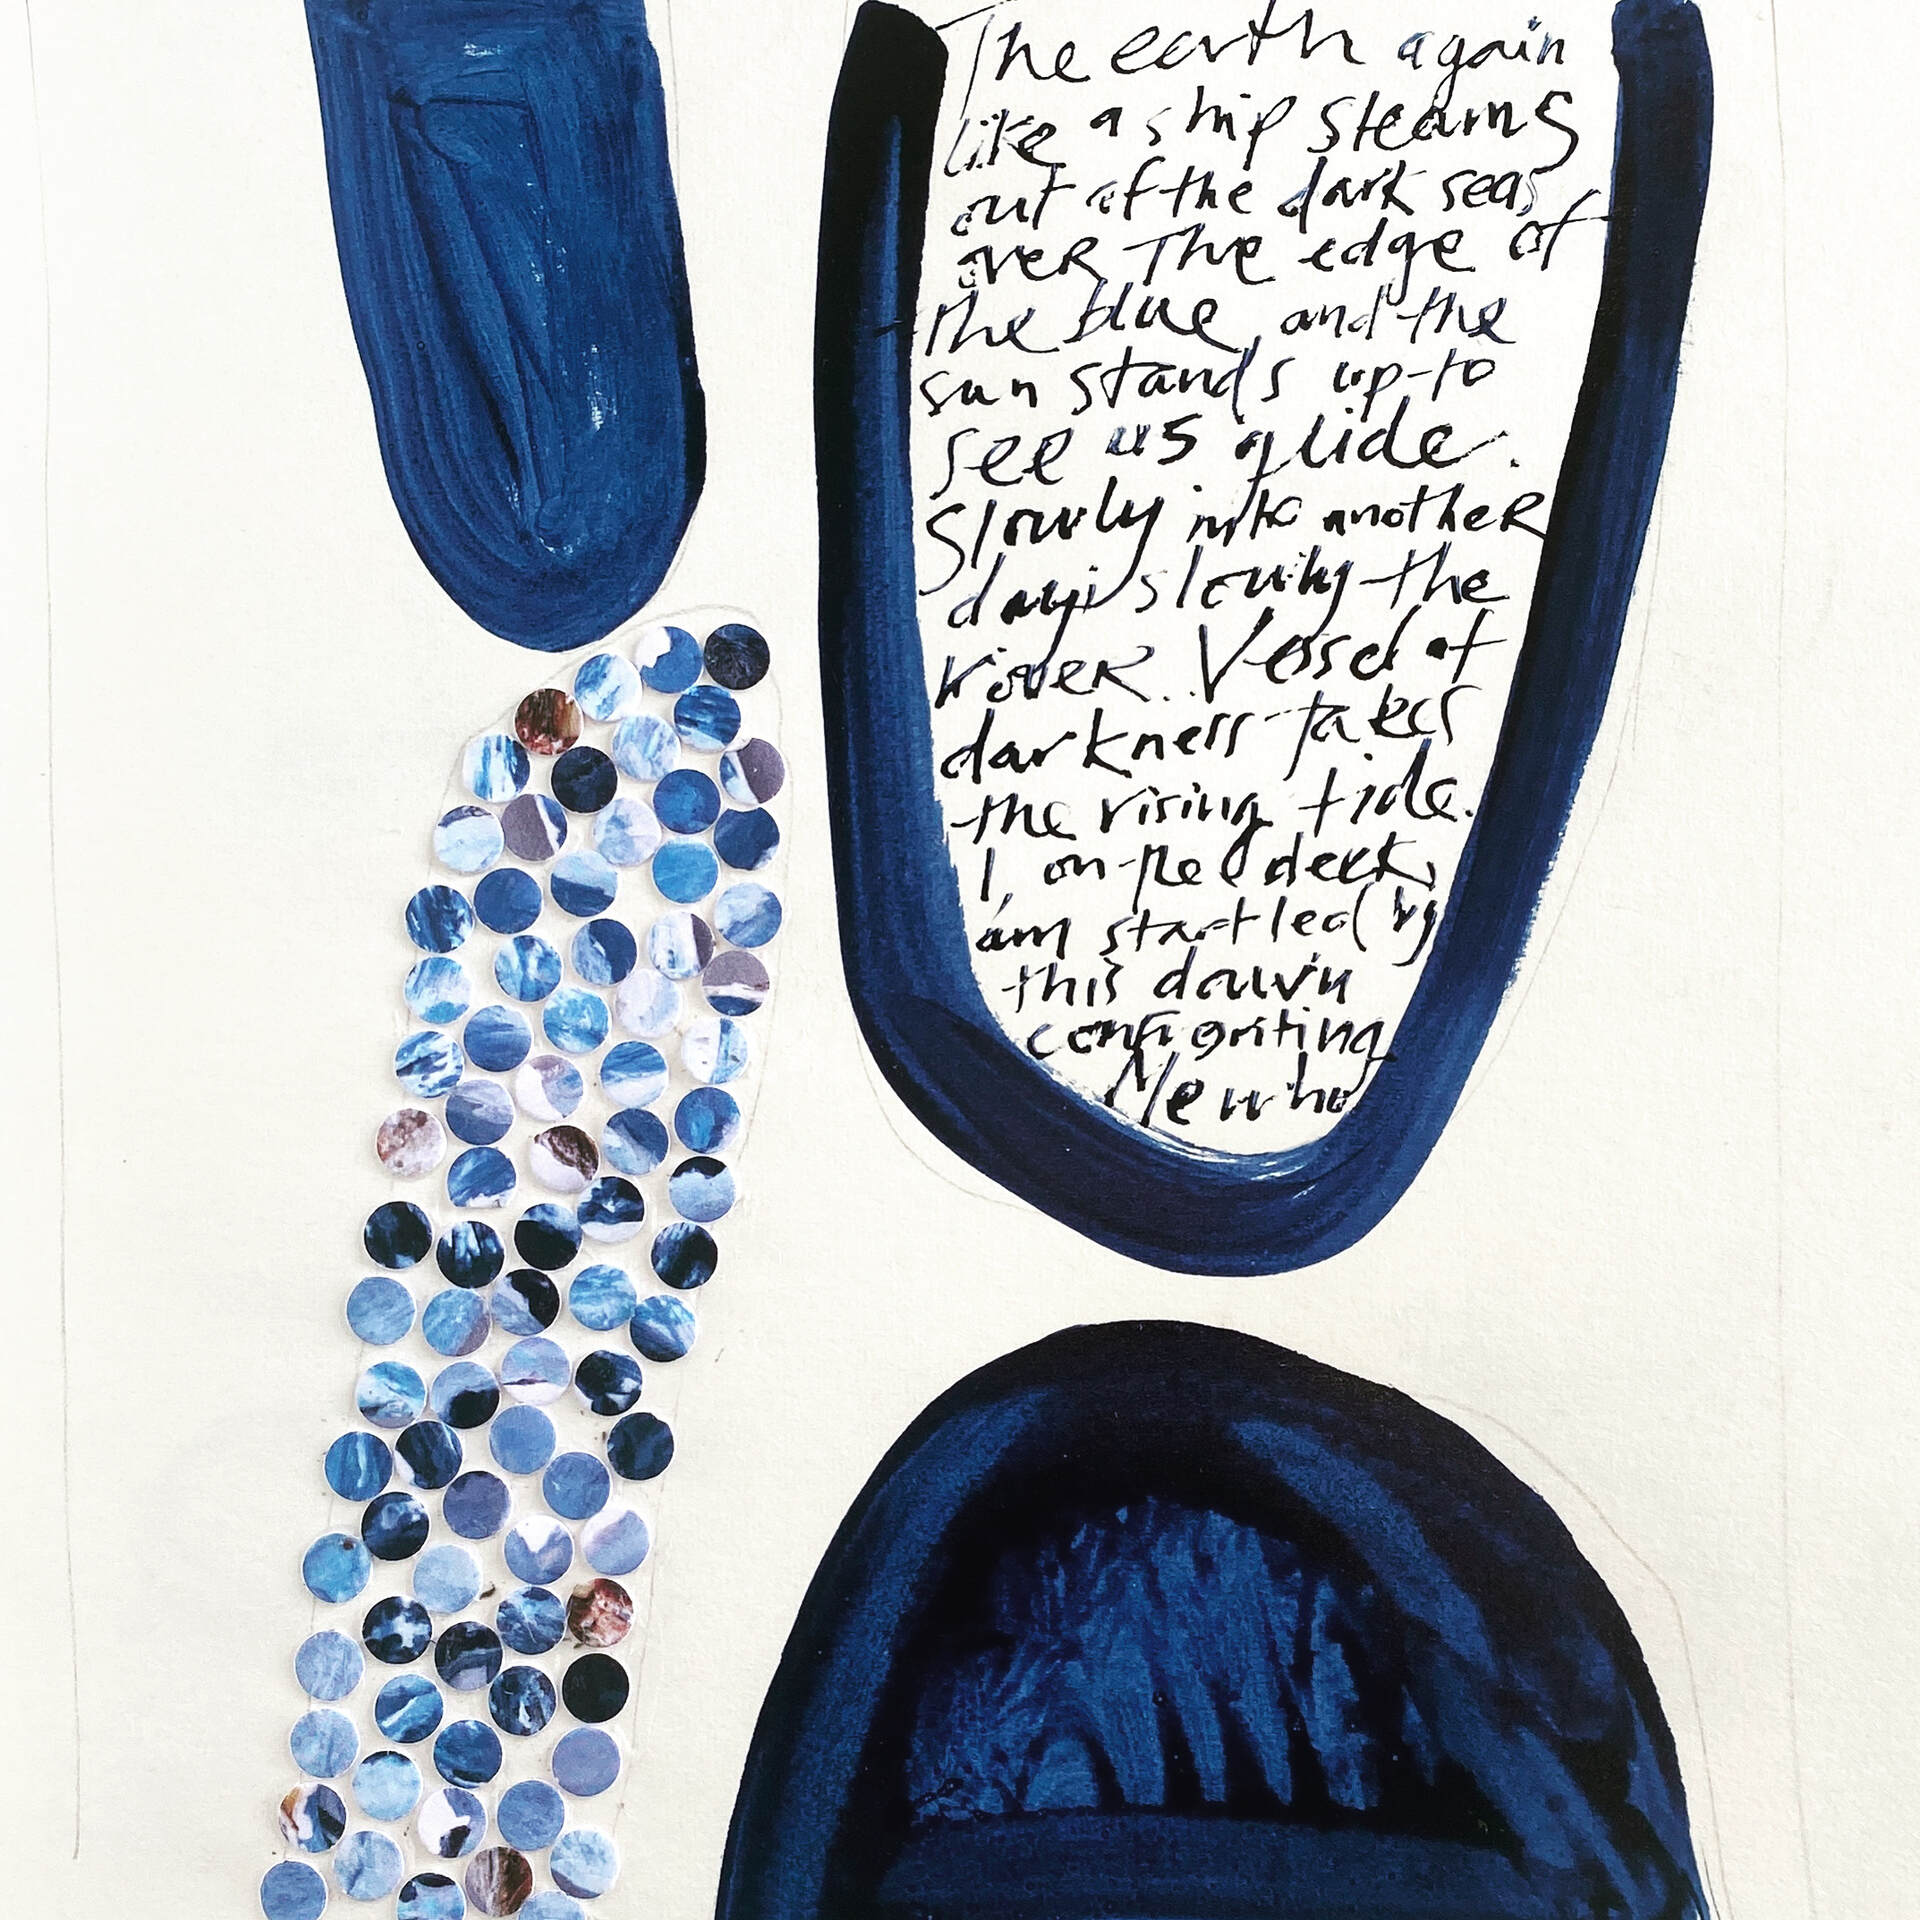 The earth again
like a ship steams
out of the dark seas
over the edge of
the blue, and the
sun stands up to
see us glide.
Slowly into another
day; slowly the
river. Vessel of
darkness takes
the rising tide.
I, on the deck,
am startled by
this dawn
confronting
Me who